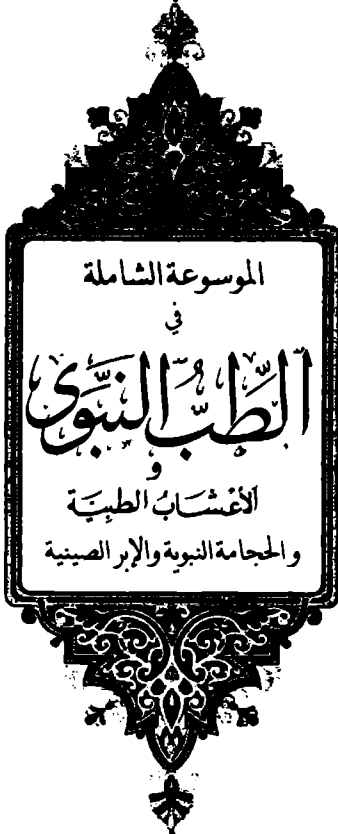 الموسوعة الشاملة
في
الطِّبُّ النَّبَوِى
و
الأعْشَابُ الطبيَّة
والحجامة النبوية والإبر الصينية